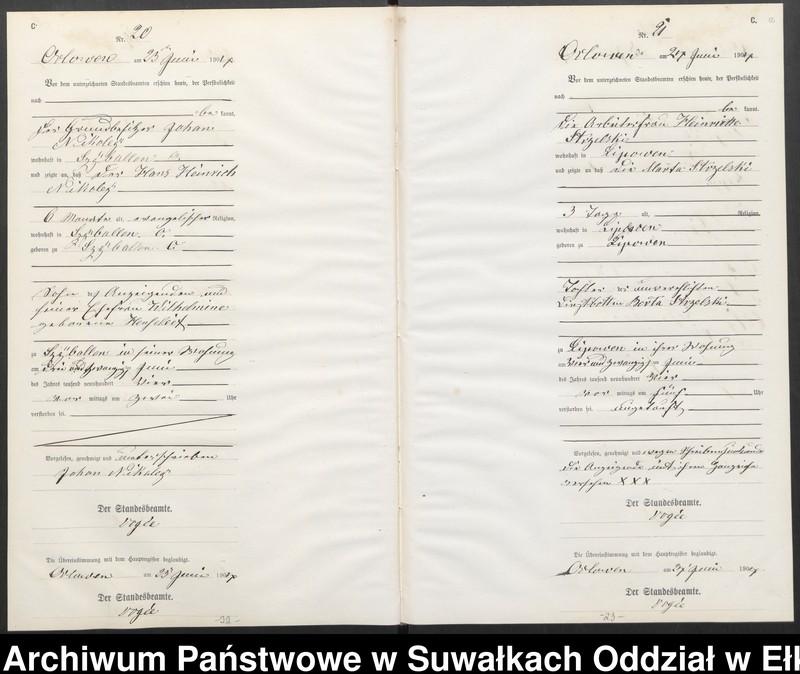 C.
Nr. 20
Orlowen am 25 Juni 1904
Vor dem unterzeichneten Standesbeamten erschien heute, der Persönlichkeit
nach
be kannt,
der Grundbesitzer Johan
Nikoley
wohnhaft in Szÿballen
und zeigte an, daß der Hans Heinrich
Nikoley
6 Monate alt, evangelischer Religion,
wohnhaft in Szÿballen
geboren zu Szÿballen
Sohn des Anzeigenden und
seiner Ehefrau Wilhelmine
geborene
zu Szÿballen in seiner Wohnung
am drei und zwanzigsten Juni
des Jahres tausend neunhundert vier
vor mittags um zwei Uhr
verstorben sei.
Vorgelesen, genehmigt und unterschrieben
Johan Nikoley
Der Standesbeamte.
Die Übereinstimmung mit dem Hauptregister beglaubigt.
Orlowen am 25 Juni 1904
Der Standesbeamte.
C.
Nr. 21
Orlowen am 27 Juni 1904
Vor dem unterzeichneten Standesbeamten erschien heute, der Persönlichkeit
nach
be kannt,
die Arbeiterfrau Heinriette
Strzelski
wohnhaft in Lipowen
und zeigte an, daß die Marta Strzelski
3 Tage alt, Religion,
wohnhaft in Lipowen
geboren zu Lipowen
Tochter der unverehlichten
Dienstboten Berta Strzelski
zu Lipowen in ihrer Wohnung
am vier und zwanzigsten Juni
des Jahres tausend neunhundert vier
vor mittags um fünf Uhr
verstorben sei. ungetauft
Vorgelesen, genehmigt und wegen Schreibensunkunde
die Anzeigende mit ihrem Handzeichen
versehen XXX
Der Standesbeamte.
Die Übereinstimmung mit dem Hauptregister beglaubigt.
Orlowen am 27 Juni 1904
Der Standesbeamte.
Archiwum Państwowe w Suwałkach Oddział w Ełk